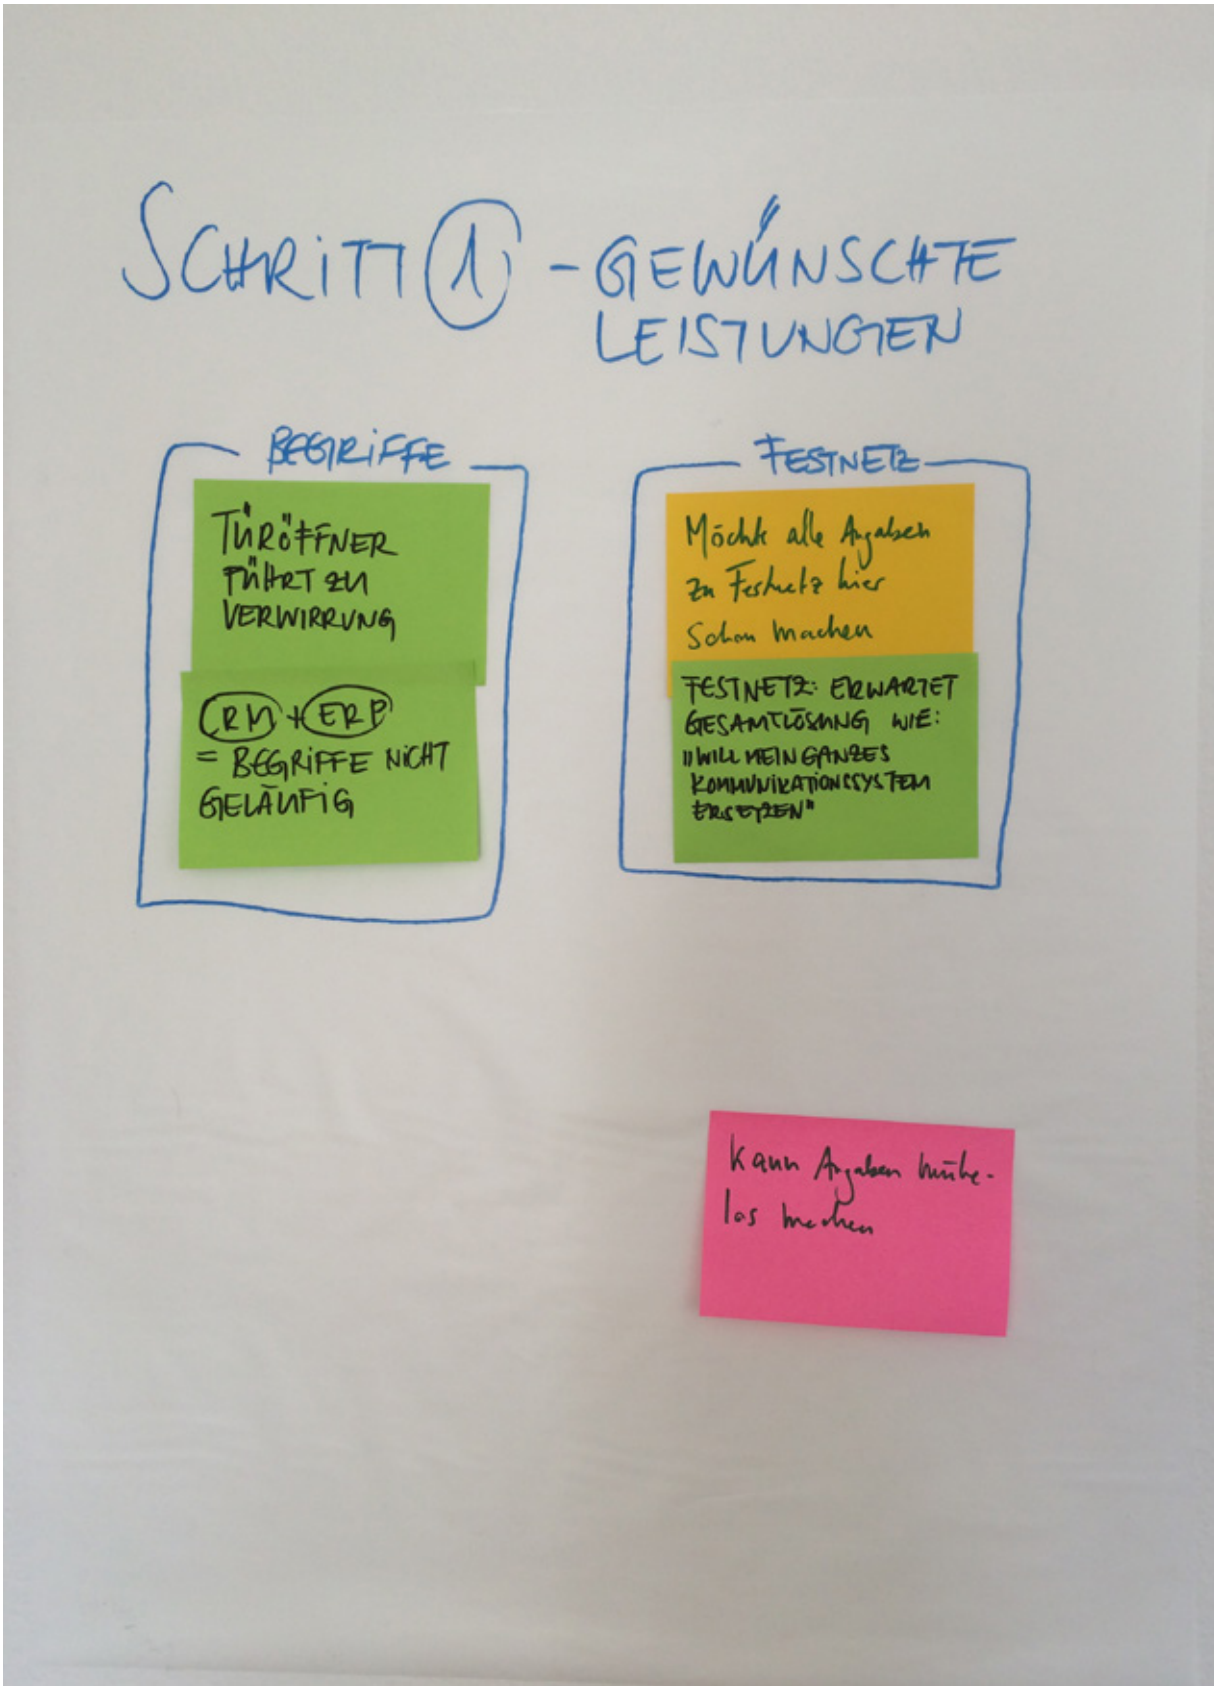 SCHRITT 1 - GEWÜNSCHTE
LEISTUNGEN
BEGRIFFE
TÜRÖFFNER
FÜHRT ZU
VERWIRRUNG
CRM + ERP
= BEGRIFFE NICHT
GELÄUFIG
FESTNETZ
Möchte alle Angaben
zu Festnetz hier
schon machen
FESTNETZ: ERWARTET
GESAMTLÖSUNG WIE:
"WILL MEIN GANZES
KOMMUNIKATIONSSYSTEM
ERSETZEN"
Kann Angaben mühe-
los machen